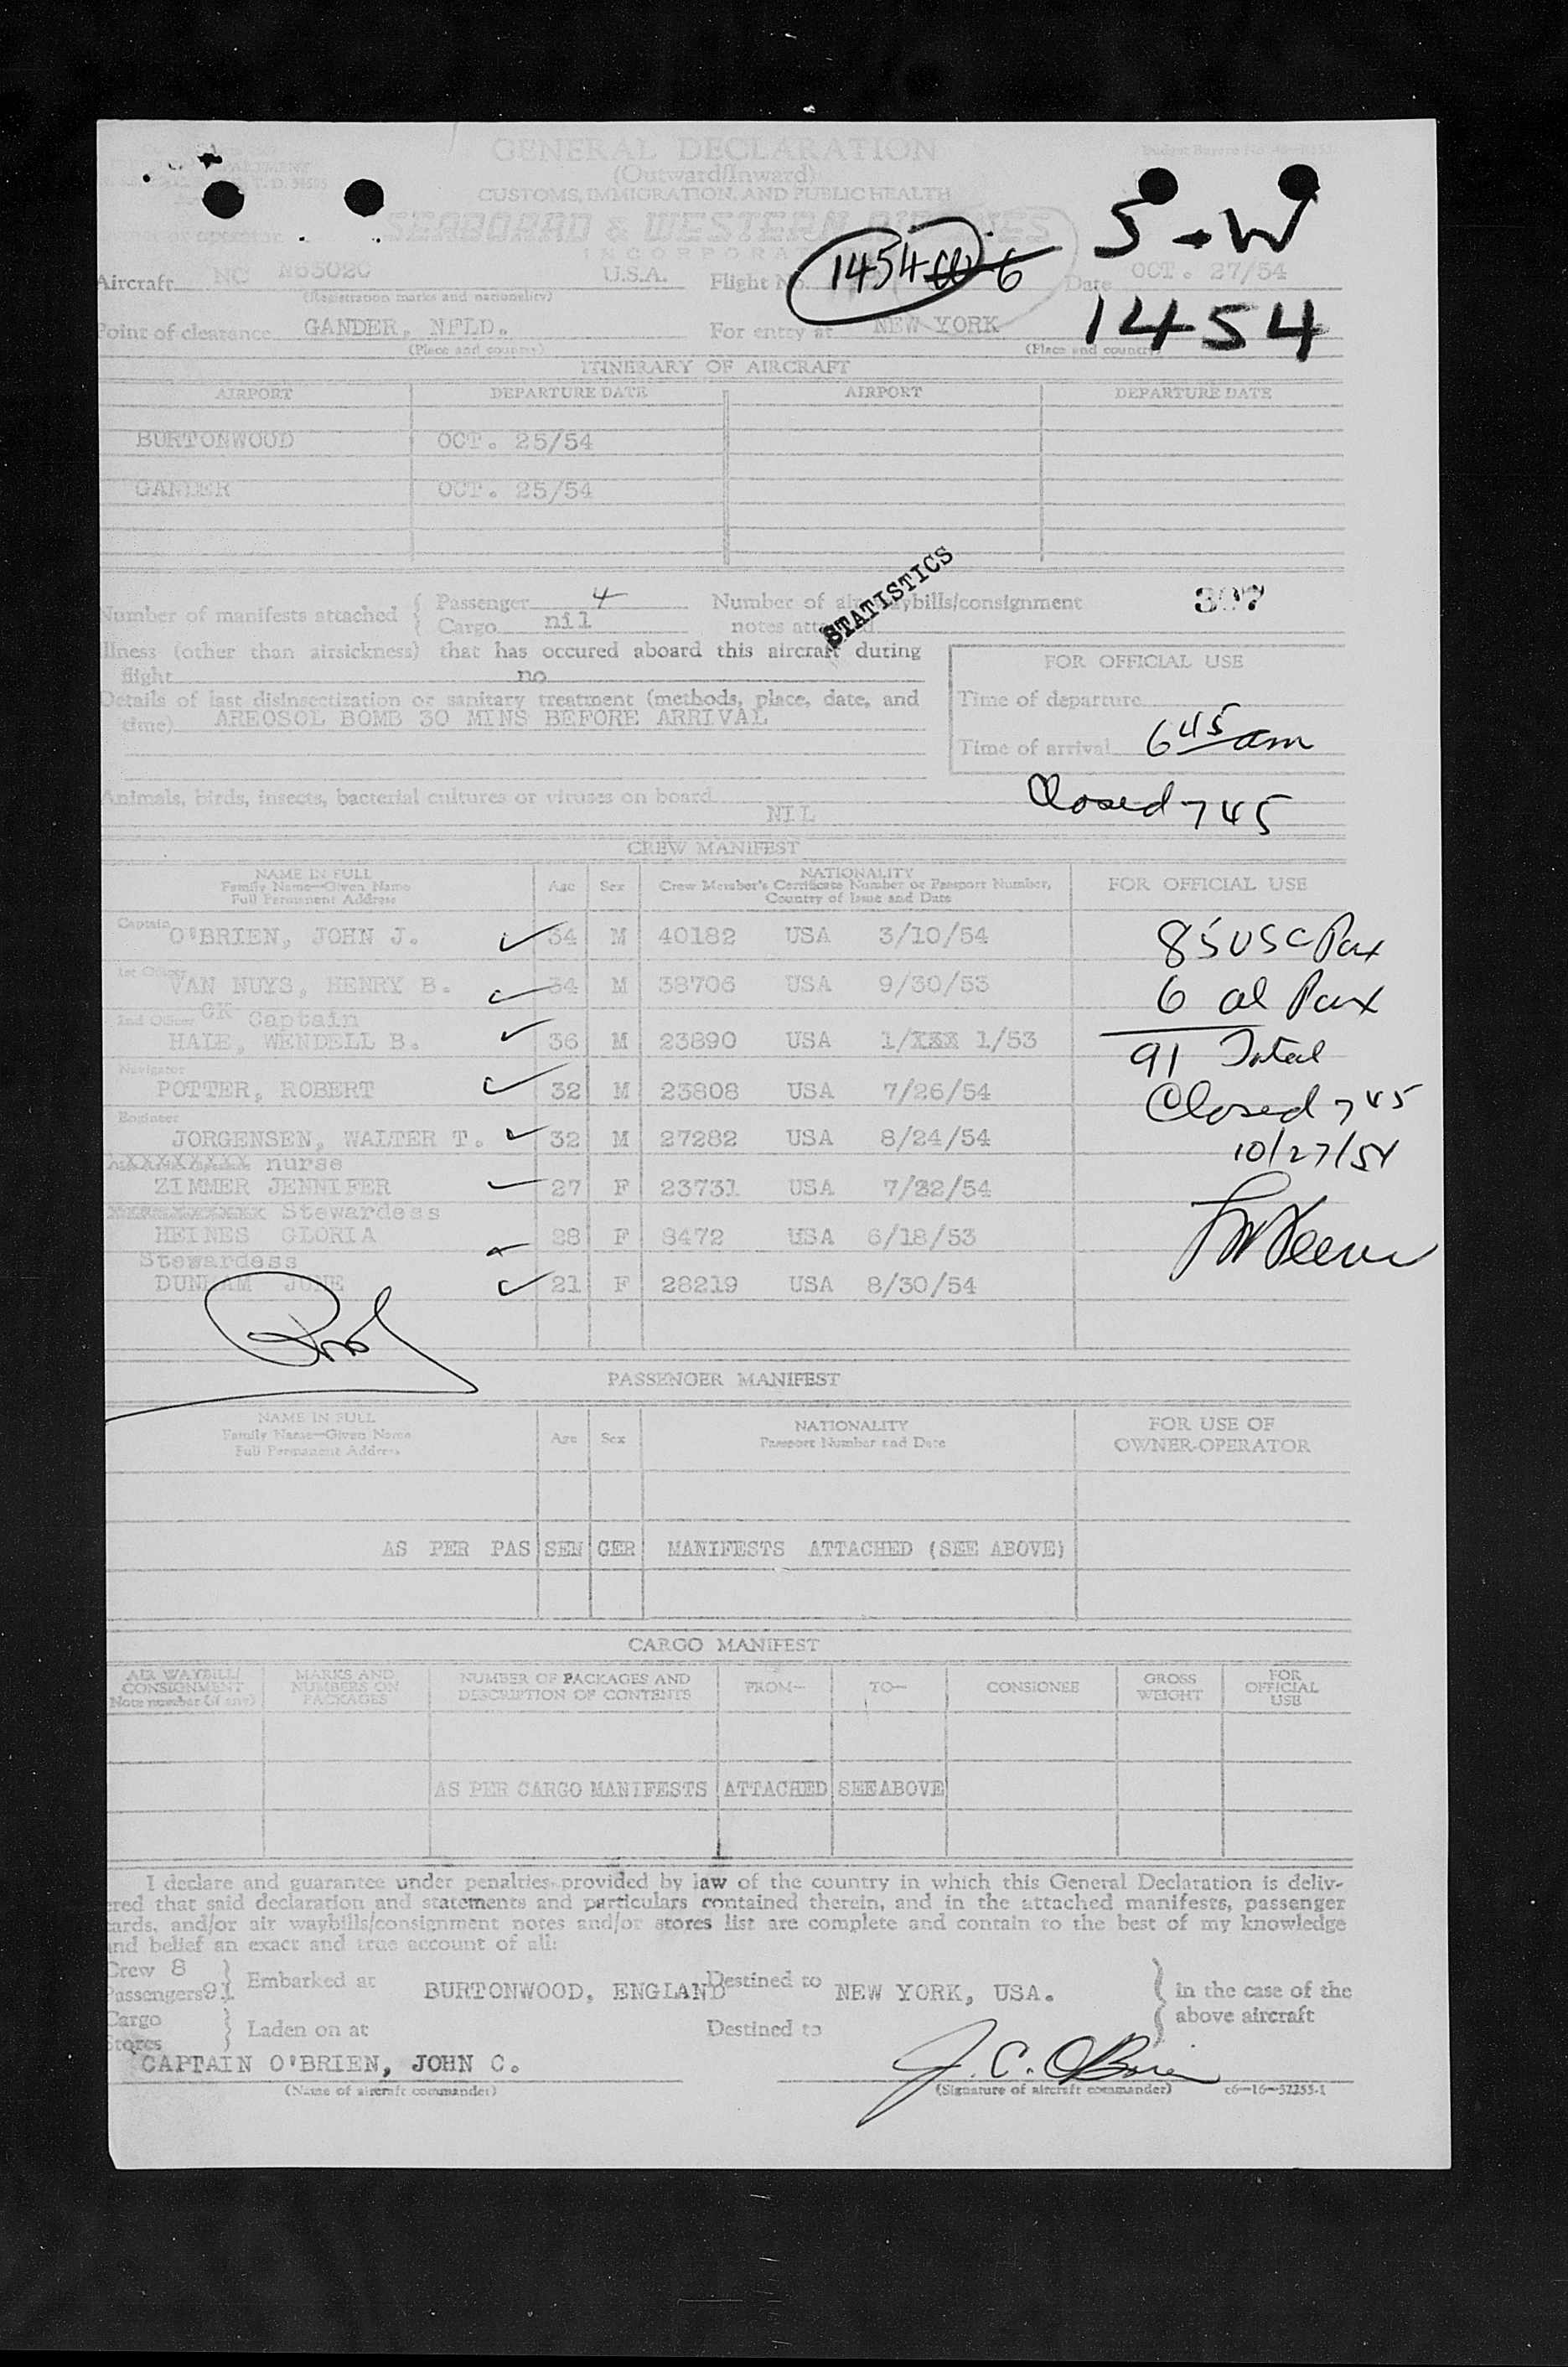 GENERAL DECLARATION
(Outward/Inward)
CUSTOMS, IMMIGRATION, AND PUBLIC HEALTH
SEABOARD & WESTERN AIRLINES
INCORPORATED
S-W
Aircraft NC N6502C U.S.A. Flight No. 1454 Date OCT. 27/54
(Registration marks and nationality)
1454
Point of clearance GANDER, NFLD. For entry at NEW YORK
(Place and country) (Place and country)
ITINERARY OF AIRCRAFT
AIRPORT DEPARTURE DATE AIRPORT DEPARTURE DATE
BURTONWOOD OCT. 25/54
GANDER OCT. 25/54
STATISTICS
Number of manifests attached { Passenger 4 Number of air waybills/consignment 397
Cargo nil notes attached
Illness (other than airsickness) that has occured aboard this aircraft during
flight no
FOR OFFICIAL USE
Details of last disinsectization or sanitary treatment (methods, place, date, and
time) AREOSOL BOMB 30 MINS BEFORE ARRIVAL
Time of departure
Time of arrival 6 45 am
Animals, birds, insects, bacterial cultures or viruses on board
NIL
Closed 7 45
CREW MANIFEST
NAME IN FULL Age Sex NATIONALITY FOR OFFICIAL USE
Family Name—Given Name Crew Member's Certificate Number or Passport Number,
Full Permanent Address Country of Issue and Date
Captain O'BRIEN, JOHN J. 34 M 40182 USA 3/10/54 85 USC Pax
1st Officer VAN NUYS, HENRY B. 34 M 38706 USA 9/30/53 6 al Pax
2nd Officer CK Captain
HALE, WENDELL B. 36 M 23890 USA 1/XXX 1/53 91 Total
Navigator
POTTER, ROBERT 32 M 23808 USA 7/26/54 Closed 7 45
Engineer
JORGENSEN, WALTER T. 32 M 27282 USA 8/24/54 10/27/54
nurse
ZIMMER JENNIFER 27 F 23731 USA 7/22/54
Stewardess
HEINES GLORIA 28 F 8472 USA 6/18/53
Stewardess
DUNHAM JUNE 21 F 28219 USA 8/30/54
PASSENGER MANIFEST
NAME IN FULL Age Sex NATIONALITY FOR USE OF
Family Name—Given Name Passport Number and Date OWNER-OPERATOR
Full Permanent Address
AS PER PAS SEN GER MANIFESTS ATTACHED (SEE ABOVE)
CARGO MANIFEST
AIR WAYBILL/ MARKS AND NUMBER OF PACKAGES AND FROM— TO— CONSIGNEE GROSS FOR
CONSIGNMENT NUMBERS ON DESCRIPTION OF CONTENTS WEIGHT OFFICIAL
Note number (if any) PACKAGES USE
AS PER CARGO MANIFESTS ATTACHED SEE ABOVE
I declare and guarantee under penalties provided by law of the country in which this General Declaration is deliv-
ered that said declaration and statements and particulars contained therein, and in the attached manifests, passenger
cards, and/or air waybills/consignment notes and/or stores list are complete and contain to the best of my knowledge
and belief an exact and true account of all:
Crew 8
Passengers 91 } Embarked at BURTONWOOD, ENGLAND Destined to NEW YORK, USA. } in the case of the
Cargo above aircraft
Stores } Laden on at Destined to
CAPTAIN O'BRIEN, JOHN C. J. C. O'Brien
(Name of aircraft commander) (Signature of aircraft commander) c6—16—52255-1